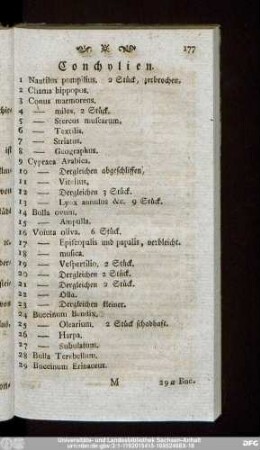 177
Conchylien.
1 Nautilus pompilius. 2 Stück, zerbrochen.
2 Chama hippopus.
3 Conus marmoreus.
4 — miles. 2 Stück.
5 — Stercus muscarum.
6 — Textilis.
7 — Striatus.
8 — Geographus.
9 Cypraea Arabica.
10 — Dergleichen abgeschliffen,
11 —
12 — Dergleichen 3 Stück.
13 — Lynx annulus &c. 9 Stück.
14 Bulla ovum.
15 — Ampulla.
16 Voluta oliva. 6 Stück.
17 — Episcopalis und papalis, verbleicht.
18 — musica.
19 — Vespertilio, 2 Stück.
20 — Dergleichen 2 Stück.
21 — Dergleichen 2 Stück.
22 — Olla.
23 — Dergleichen kleiner.
24 Buccinum
25 — Olearium. 2 Stück schadhaft.
26 — Harpa.
27 — Subulatum.
28 Bulla Terebellum.
29 Buccinum Erinaceus.
M 29a Buc.
Universitäts- und Landesbibliothek Sachsen-Anhalt
DFG